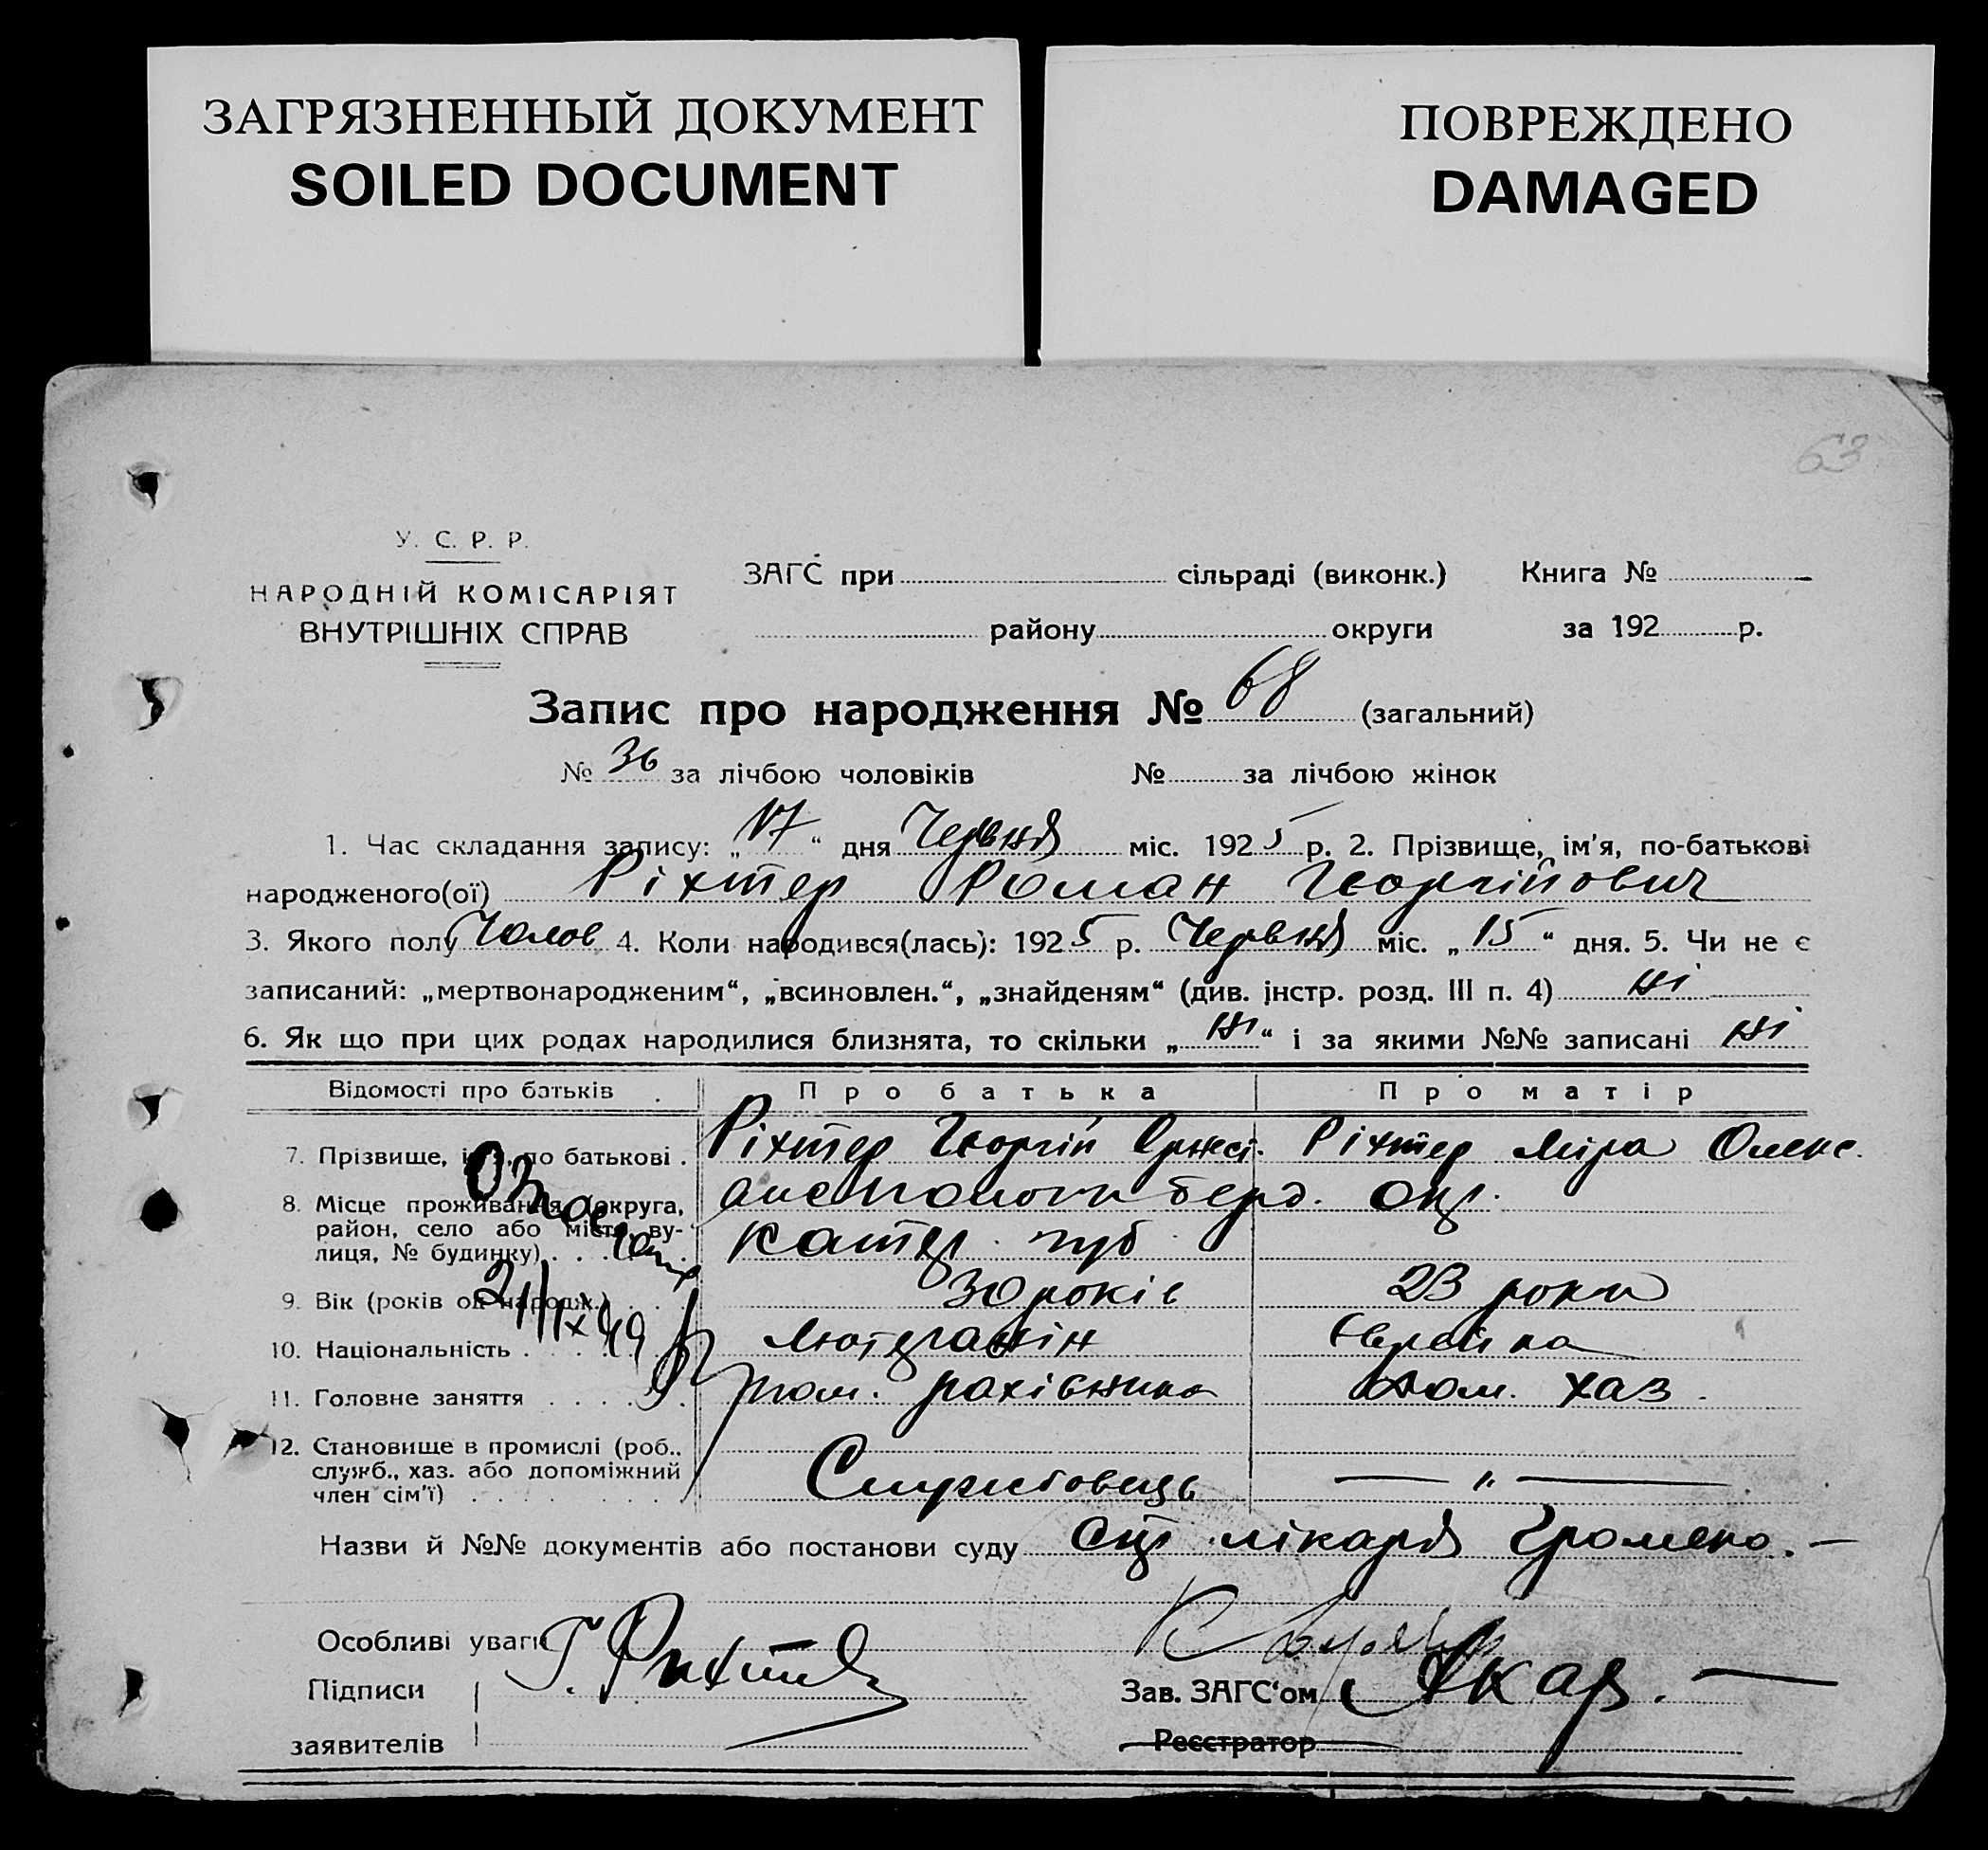 ЗАГРЯЗНЕННЫЙ ДОКУМЕНТ
SOILED DOCUMENT
ПОВРЕЖДЕНО
DAMAGED
63
У. С. Р. Р.
НАРОДНІЙ КОМІСАРІЯТ
ВНУТРІШНІХ СПРАВ
ЗАГС при сільраді (виконк.) Книга №
району округи за 192 р.
Запис про народження № 68 (загальний)
№ 36 за лічбою чоловіків № за лічбою жінок
1. Час складання запису: „17“ дня Червня міс. 1925 р. 2. Прізвище, ім'я, по-батькові
народженого(ої) Ріхтер Роман Георгійович
3. Якого полу Чолов 4. Коли народився(лась): 1925 р. Червня міс. „15“ дня. 5. Чи не є
записаний: „мертвонародженим“, „всиновлен.“, „знайденям“ (див. інстр. розд. III п. 4) ні
6. Як що при цих родах народилися близнята, то скільки „ні“ і за якими №№ записані ні
Відомості про батьків Про батька Про матір
7. Прізвище, ім'я, по батькові . Ріхтер Георгій Ріхтер Міра Олекс.
8. Місце проживання (округа, район, село або місто, вулиця, № будинку) . . . берд. окр.
Катер. губ
9. Вік (років од народж.) . . . 30 років 23 роки
2/IX 49
10. Національність . . . . . Лютеранін Єврейка
11. Головне заняття . . . . . пом. рахівника дом. хаз.
12. Становище в промислі (роб., служб., хаз. або допоміжний член сім'ї) . . . . . Службовець — „ —
Назви й №№ документів або постанови суду лікаря Громеко. —
Особливі уваги
Підписи
заявителів
Г. Рихтер
Зав. ЗАГС‘ом
Реєстратор